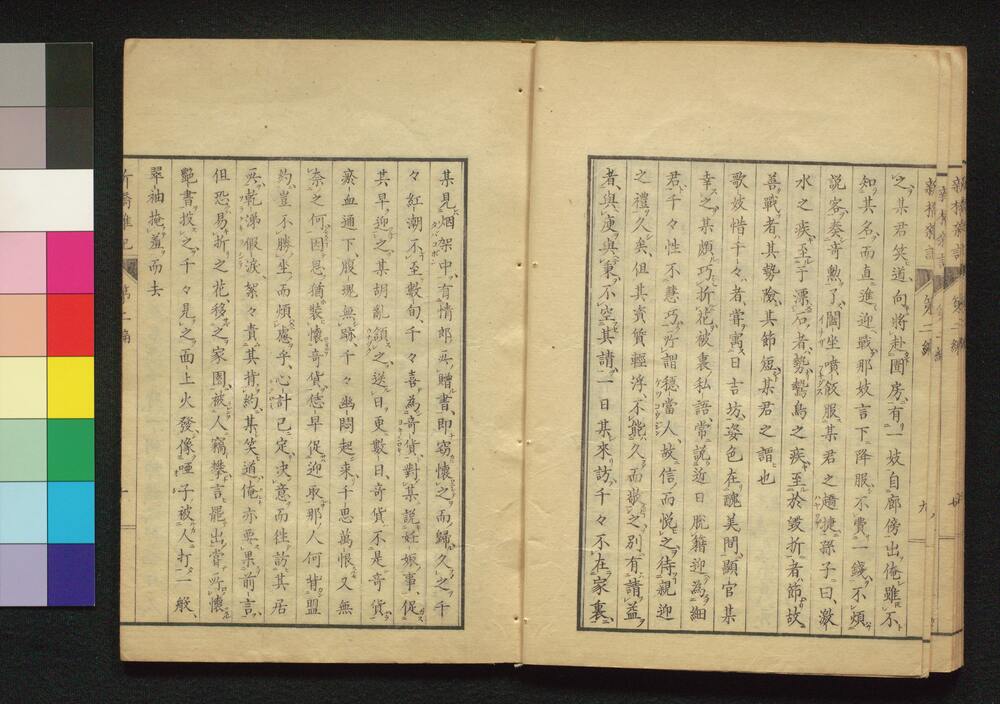 之、某君笑道、向將赴圊房、有一妓自廊傍出、俺雖不
知其名、而直進迎戰、那妓言下降服、不費一錢、不煩
說客、奏奇勲了、闔坐噴飯服某君之趫捷、孫子曰、激
水之疾、至于漂石者、勢、鷙鳥之疾、至於毀折者節、故
善戰者、其勢險、其節短、某君之謂也
歌妓惜千々者、嘗寓日吉坊、姿色在醜美間、顯官某
幸之、某頗巧折花、被裏私語常說、近日脫籍迎為細
君、千々性不慧巧、所謂穩當人、故信而悅之、待親迎
之禮久矣、但其賣賃輕浮、不能久而散之、別有請益
者、與庾與秉、不空其請、一日某來訪、千々不在家裏、
某見烟架中、有情郎與贈書、即竊懷之而歸、久之千
々紅潮不至數旬、千々喜為奇貨、對某說妊娠事、促
其早迎之、某胡亂頷之、送日更數日、奇貨不是奇貨、
瘀血通下、腹塊無跡、千々幽悶起來、千思萬恨、又無
奈之何、因思、猶裝懷奇貨、恁早促迎取、那人何甘盟
約、豈不勝坐而煩慮乎、心計已定、決意而往訪其居、
吞乾涕假淚、絮々責其背約、某笑道、俺亦要果前言、
但恐易折之花、移之家園、被人竊攀、言罷出嘗所懷
艷書投之、千々見之、面上火發、像啞子被人打一般、
翠袖掩羞而去
第二編
九